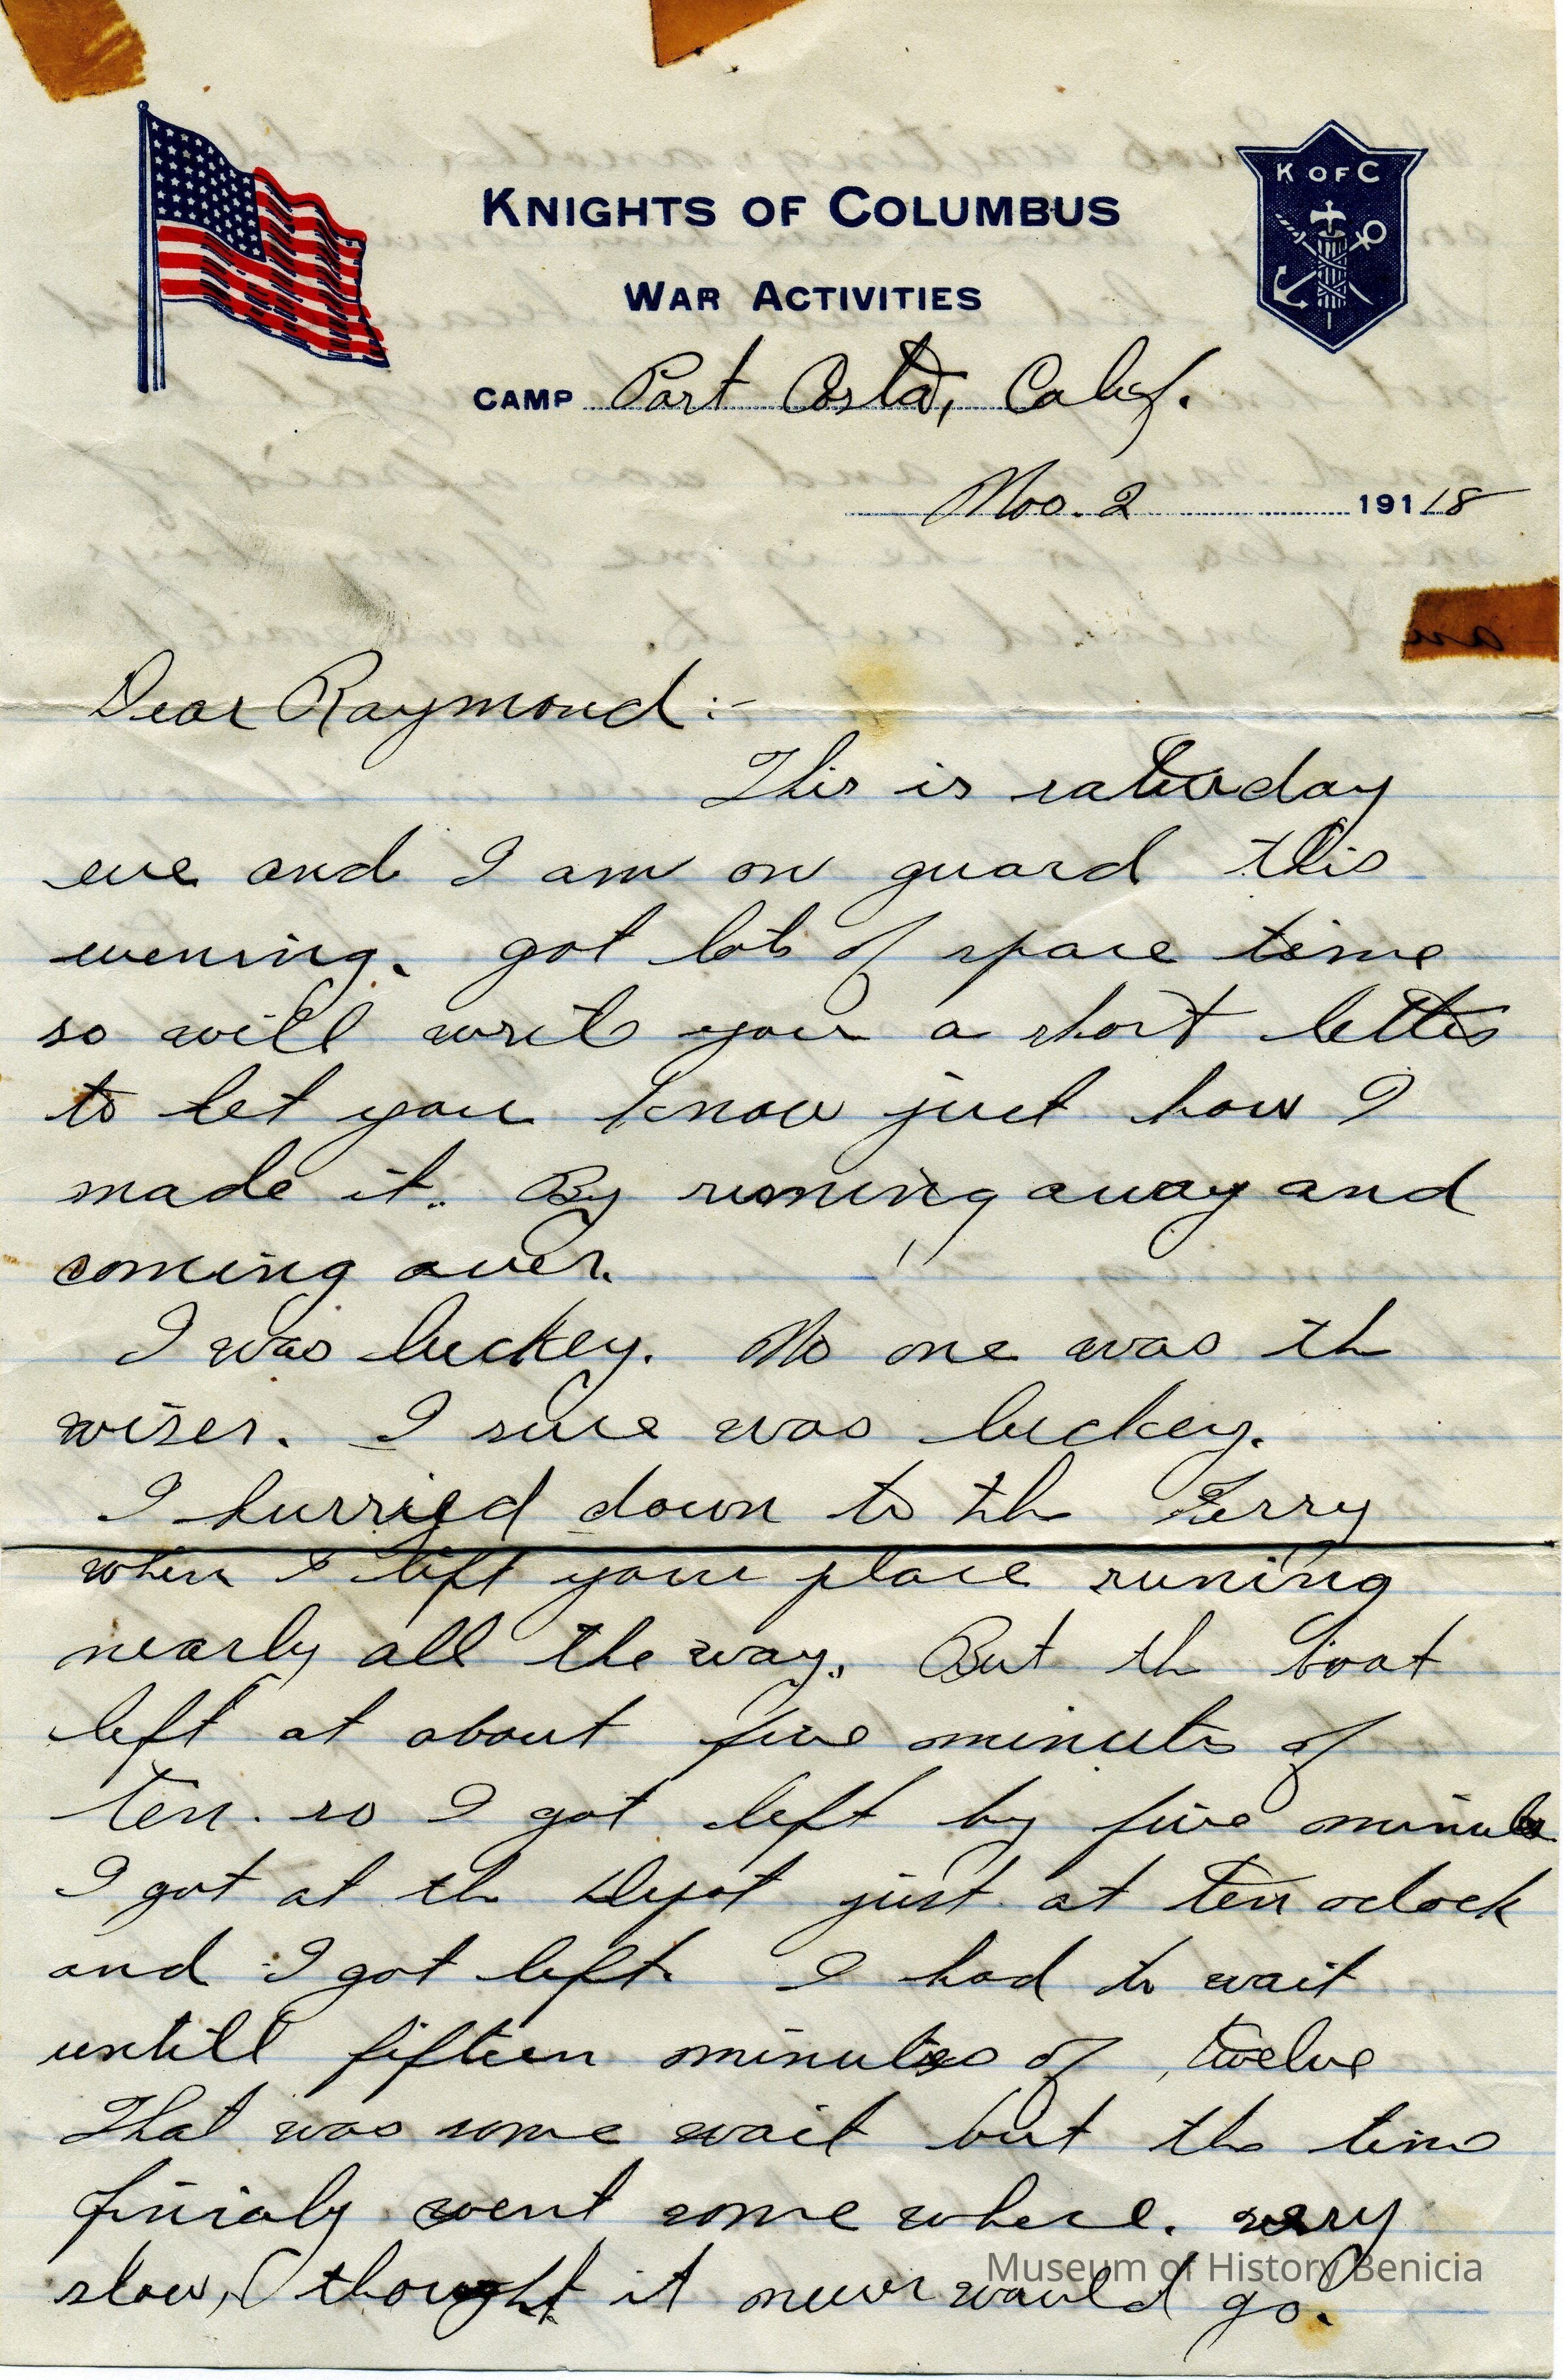 KNIGHTS OF COLUMBUS
K OF C
WAR ACTIVITIES
CAMP Port Costa, Calif.
Nov. 2 191 18
Dear Raymond:-
This is saturday
eve and I am on guard this
evening. got lots of spare time
so will write you a short letter
to let you know just how I
made it. By runing away and
coming over.
I was luckey. No one was th
wiser. I sure was luckey.
I hurried down to th Ferry
when I left your place runing
nearly all the way. But th boat
left at about five minuts of
ten. so I got left by five minuts
I got at th Depot just at ten oclock
and I got left. I had to wait
untill fifteen minutes of twelve
That was some wait but the time
finialy went some where. very
slow, I thought it never would go.
Museum of History Benicia